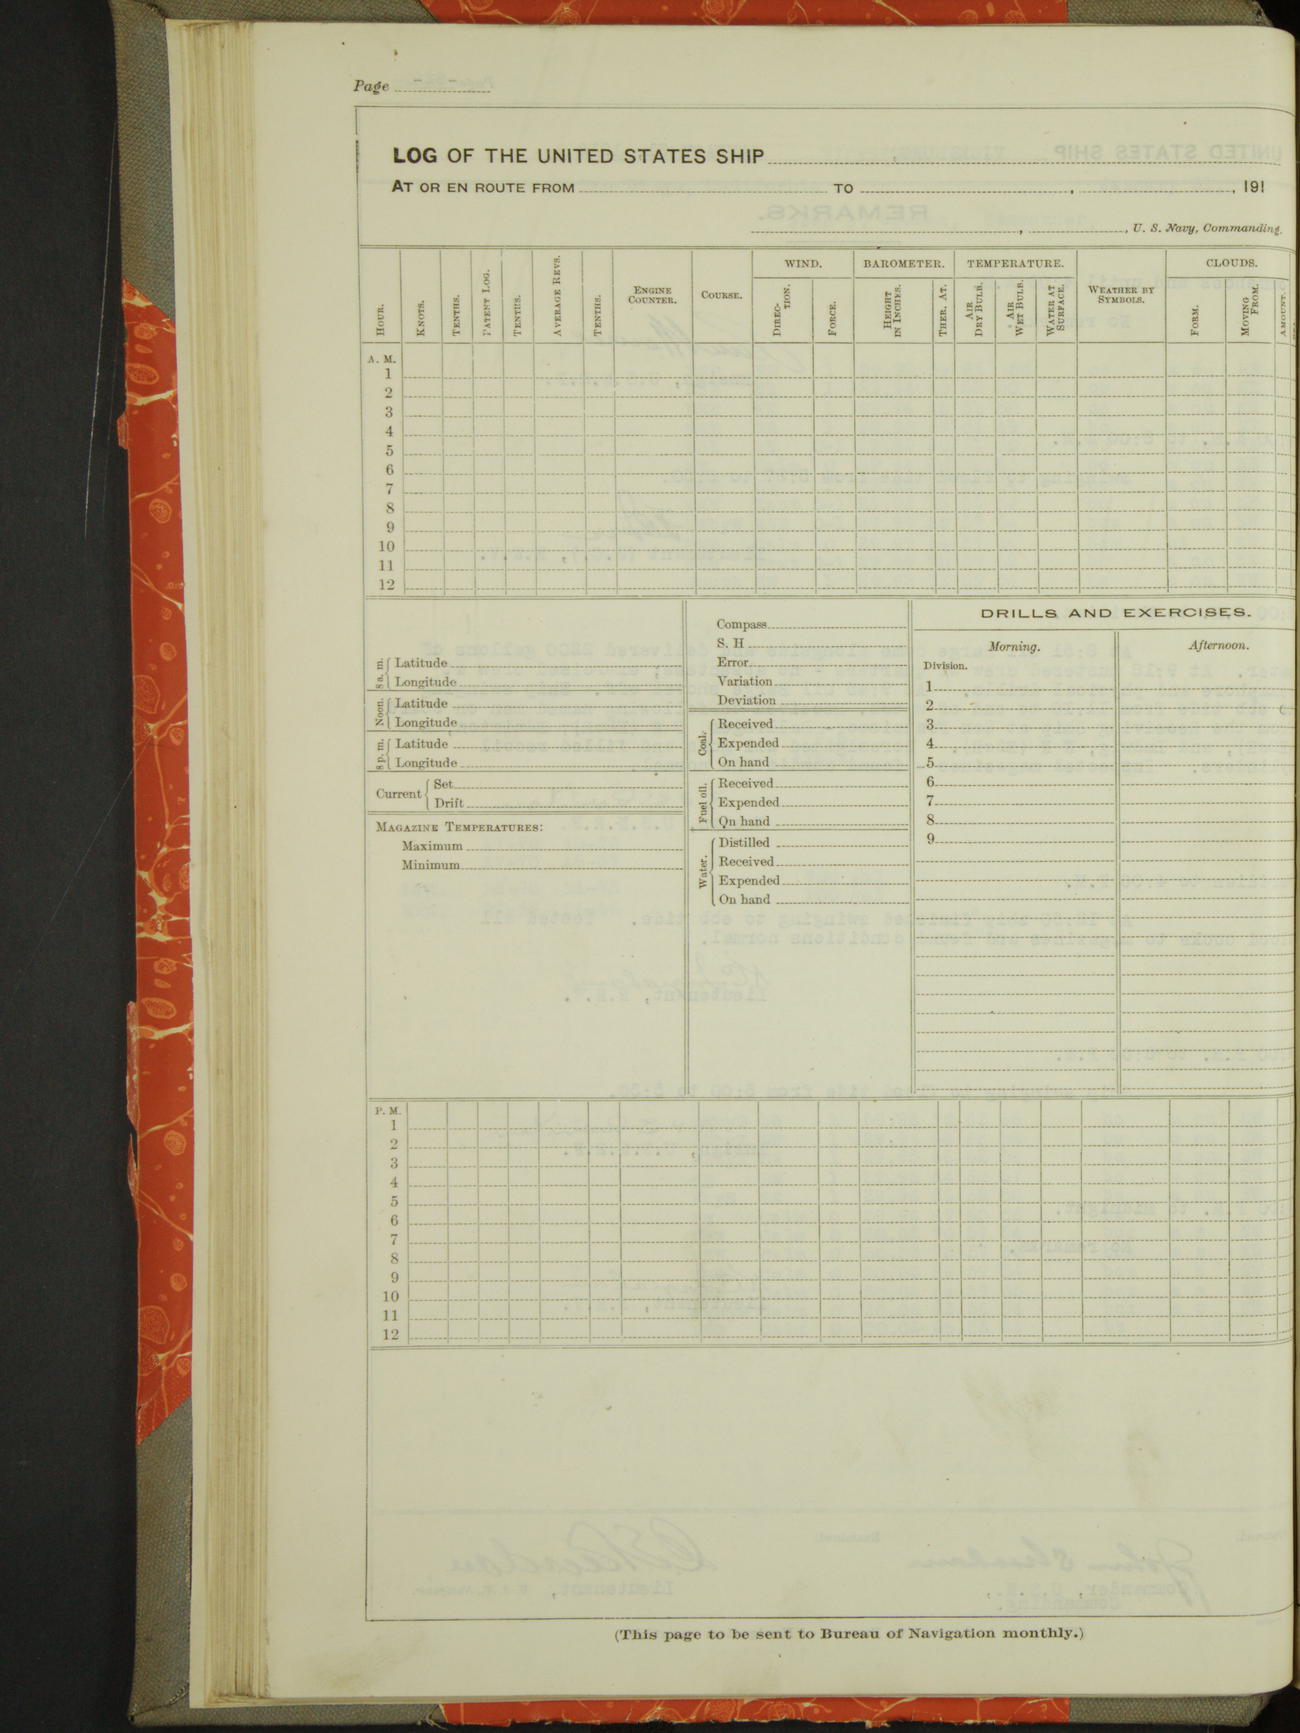 Page
LOG OF THE UNITED STATES SHIP
AT OR EN ROUTE FROM TO , , 191
, , U. S. Navy, Commanding.
HOUR. KNOTS. TENTHS. PATENT LOG. TENTHS. AVERAGE REVS. TENTHS. ENGINE COUNTER. COURSE. WIND. DIREC- TION. FORCE. BAROMETER. HEIGHT IN INCHES. THER. AT. TEMPERATURE. AIR DRY BULB. AIR WET BULB. WATER AT SURFACE. WEATHER BY SYMBOLS. CLOUDS. FORM. MOVING FROM. AMOUNT.
A. M.
1
2
3
4
5
6
7
8
9
10
11
12
8 a. m. Latitude
Longitude
Noon. Latitude
Longitude
8 p. m. Latitude
Longitude
Current Set
Drift
MAGAZINE TEMPERATURES:
Maximum
Minimum
Compass
S. H
Error
Variation
Deviation
Coal. Received
Expended
On hand
Fuel oil. Received
Expended
On hand
Water. Distilled
Received
Expended
On hand
DRILLS AND EXERCISES.
Morning. Afternoon.
Division.
1
2
3
4
5
6
7
8
9
P. M.
1
2
3
4
5
6
7
8
9
10
11
12
(This page to be sent to Bureau of Navigation monthly.)